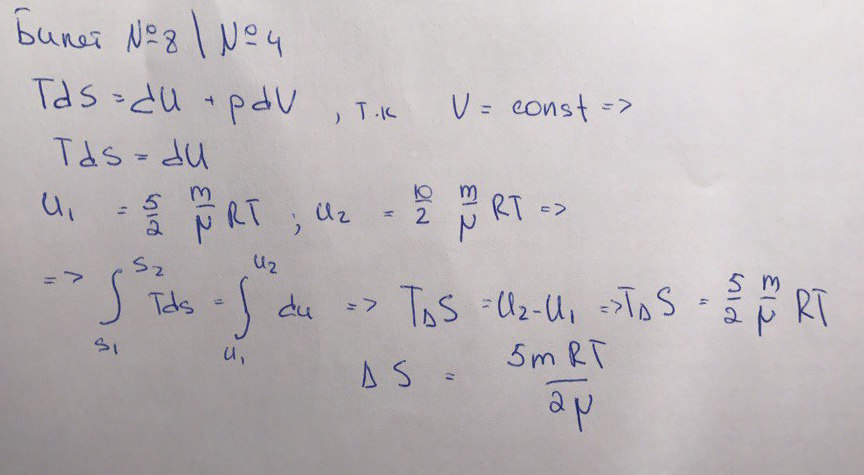 Билет №8 \ №4
TdS = dU + pdV , т.к V = const =>
TdS = dU
U₁ = 5/2 m/μ RT ; U₂ = 10/2 m/μ RT =>
=> ∫_{S₁}^{S₂} Tds = ∫_{U₁}^{U₂} du => TΔS = U₂-U₁ => TΔS = 5/2 m/μ RT
ΔS = 5mRT/2μ